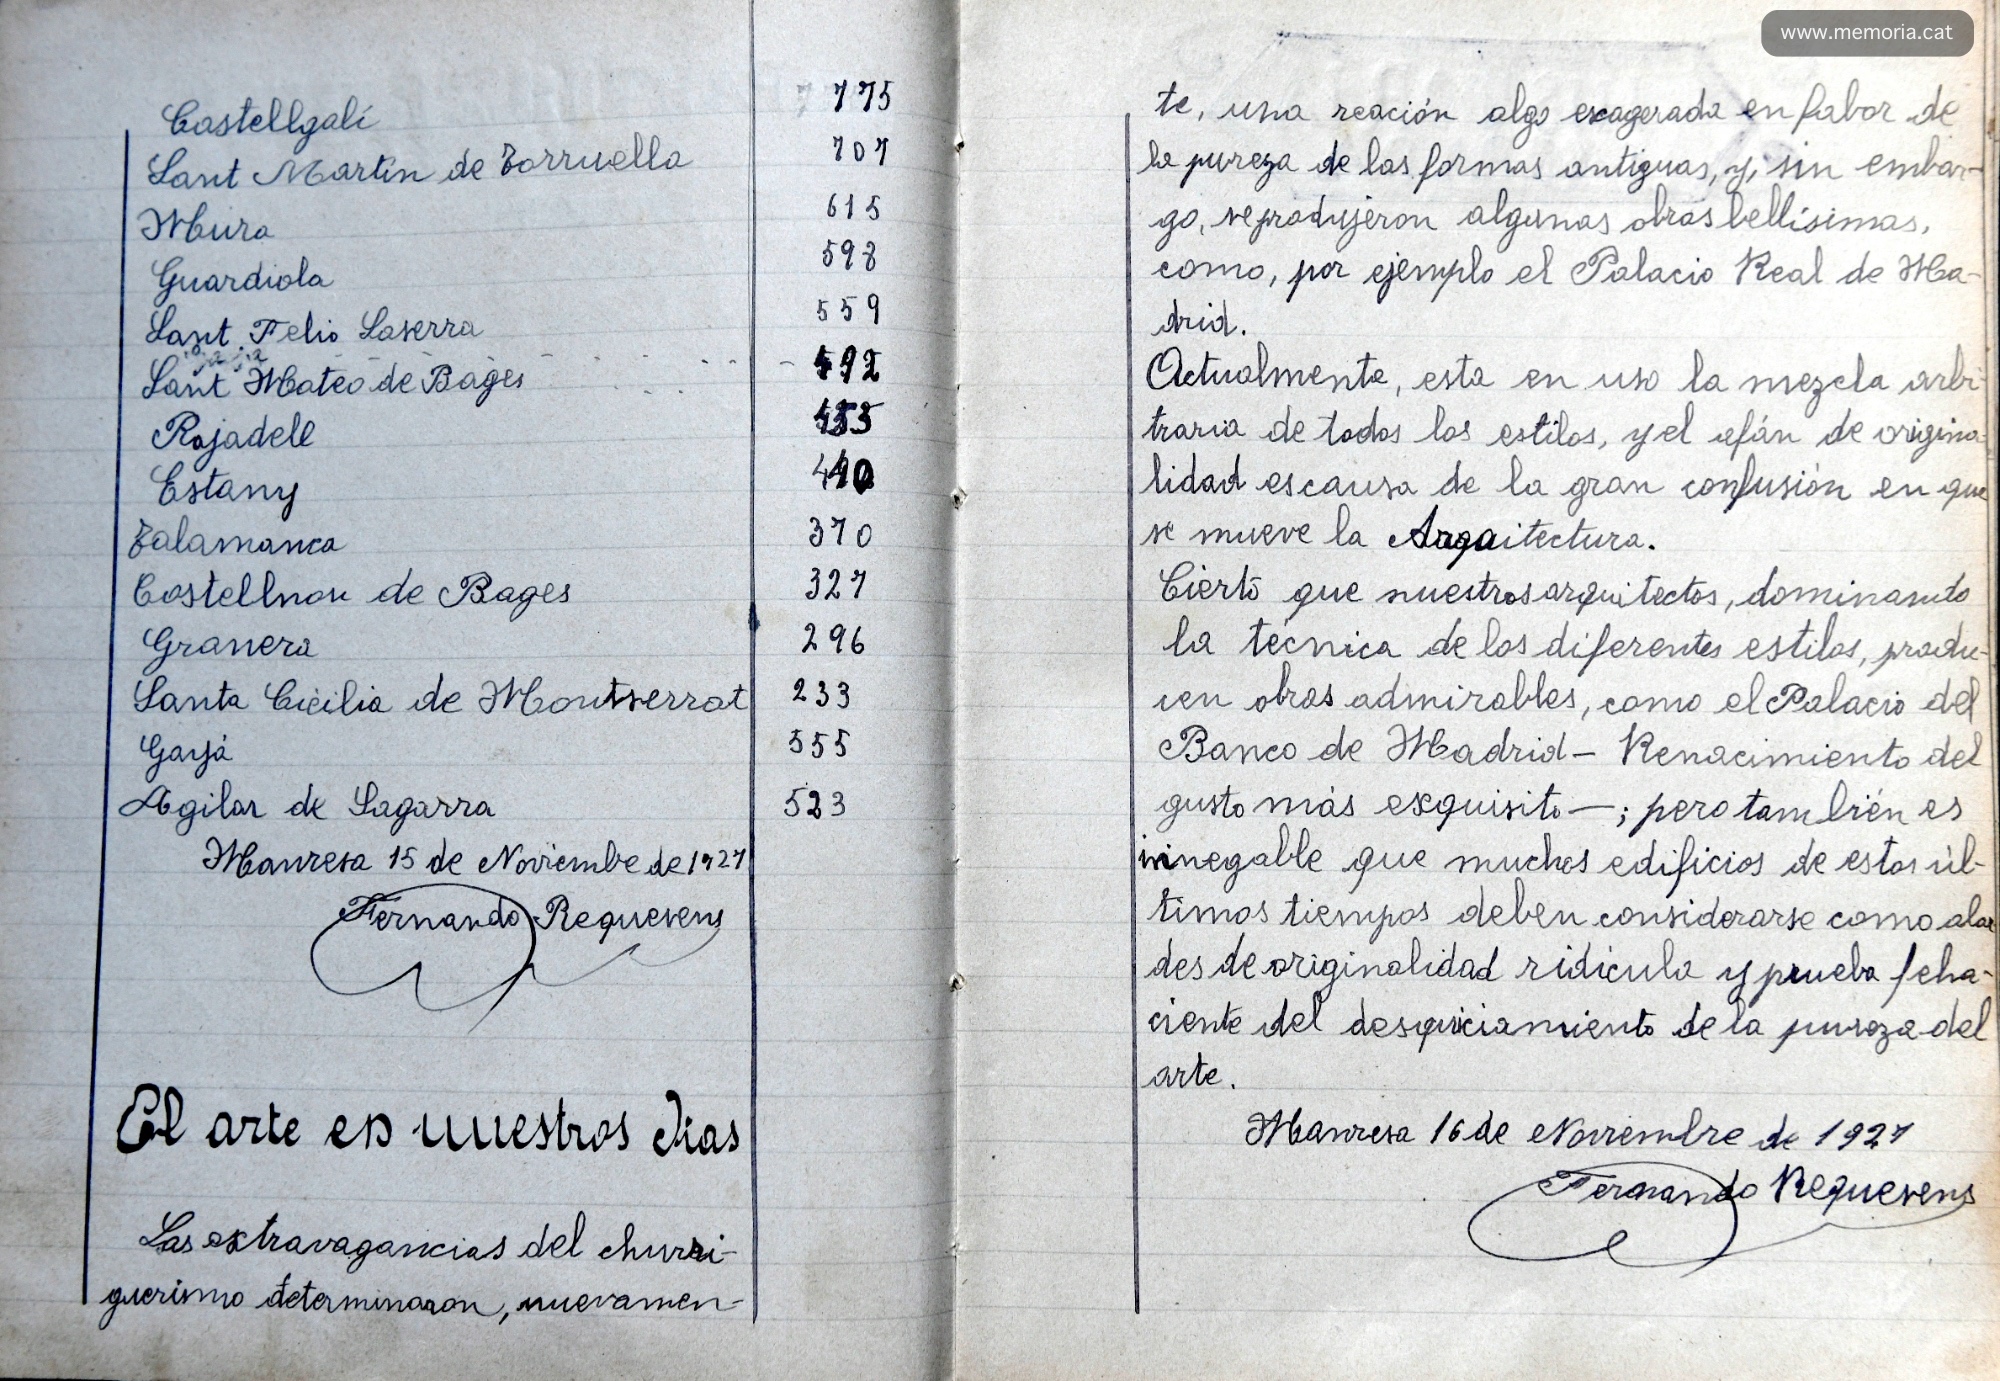 www.memoria.cat
Castellgalí 775
Sant Martin de Torruella 707
Mura 615
Guardiola 598
Sant Felio Saserra 559
Sant Mateo de Bages 492
Rajadell
Estany
Talamanca 370
Castellnou de Bages 327
Granera 296
Santa Cicilia de Montserrat 233
Gayá 555
Agilar de Sagarra 523
Manresa 15 de Noviembre de 1927
Fernando Requesens
El arte en nuestros dias
Las extravagancias del churri-
guerismo determinaron, nuevamen-
te, una reación algo exagerada en fabor de
la pureza de las formas antiguas, y, sin embar-
go, se produjeron algunas obras bellísimas,
como, por ejemplo el Palacio Real de Ma-
drid.
Actualmente, esta en uso la mezcla arbi-
traria de todos los estilos, y el afán de origina-
lidad es causa de la gran confusión en que
se mueve la Arqaitectura.
Cierto que nuestros arquitectos, dominando
la técnica de los diferentes estilos, produ-
cen obras admirables, como el Palacio del
Banco de Madrid — Renacimiento del
gusto más exquisito —; pero también es
innegable que muchos edificios de estos úl-
timos tiempos deben considerarse como alar
des de originalidad ridícula y prueba feha-
ciente del desquiciamiento de la pureza del
arte.
Manresa 16 de Noviembre de 1927
Fernando Requesens